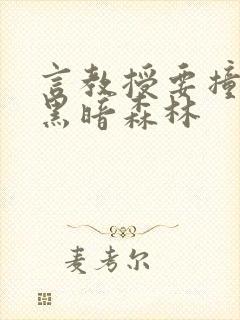 言教授要撞
黑暗森林
麦考尔